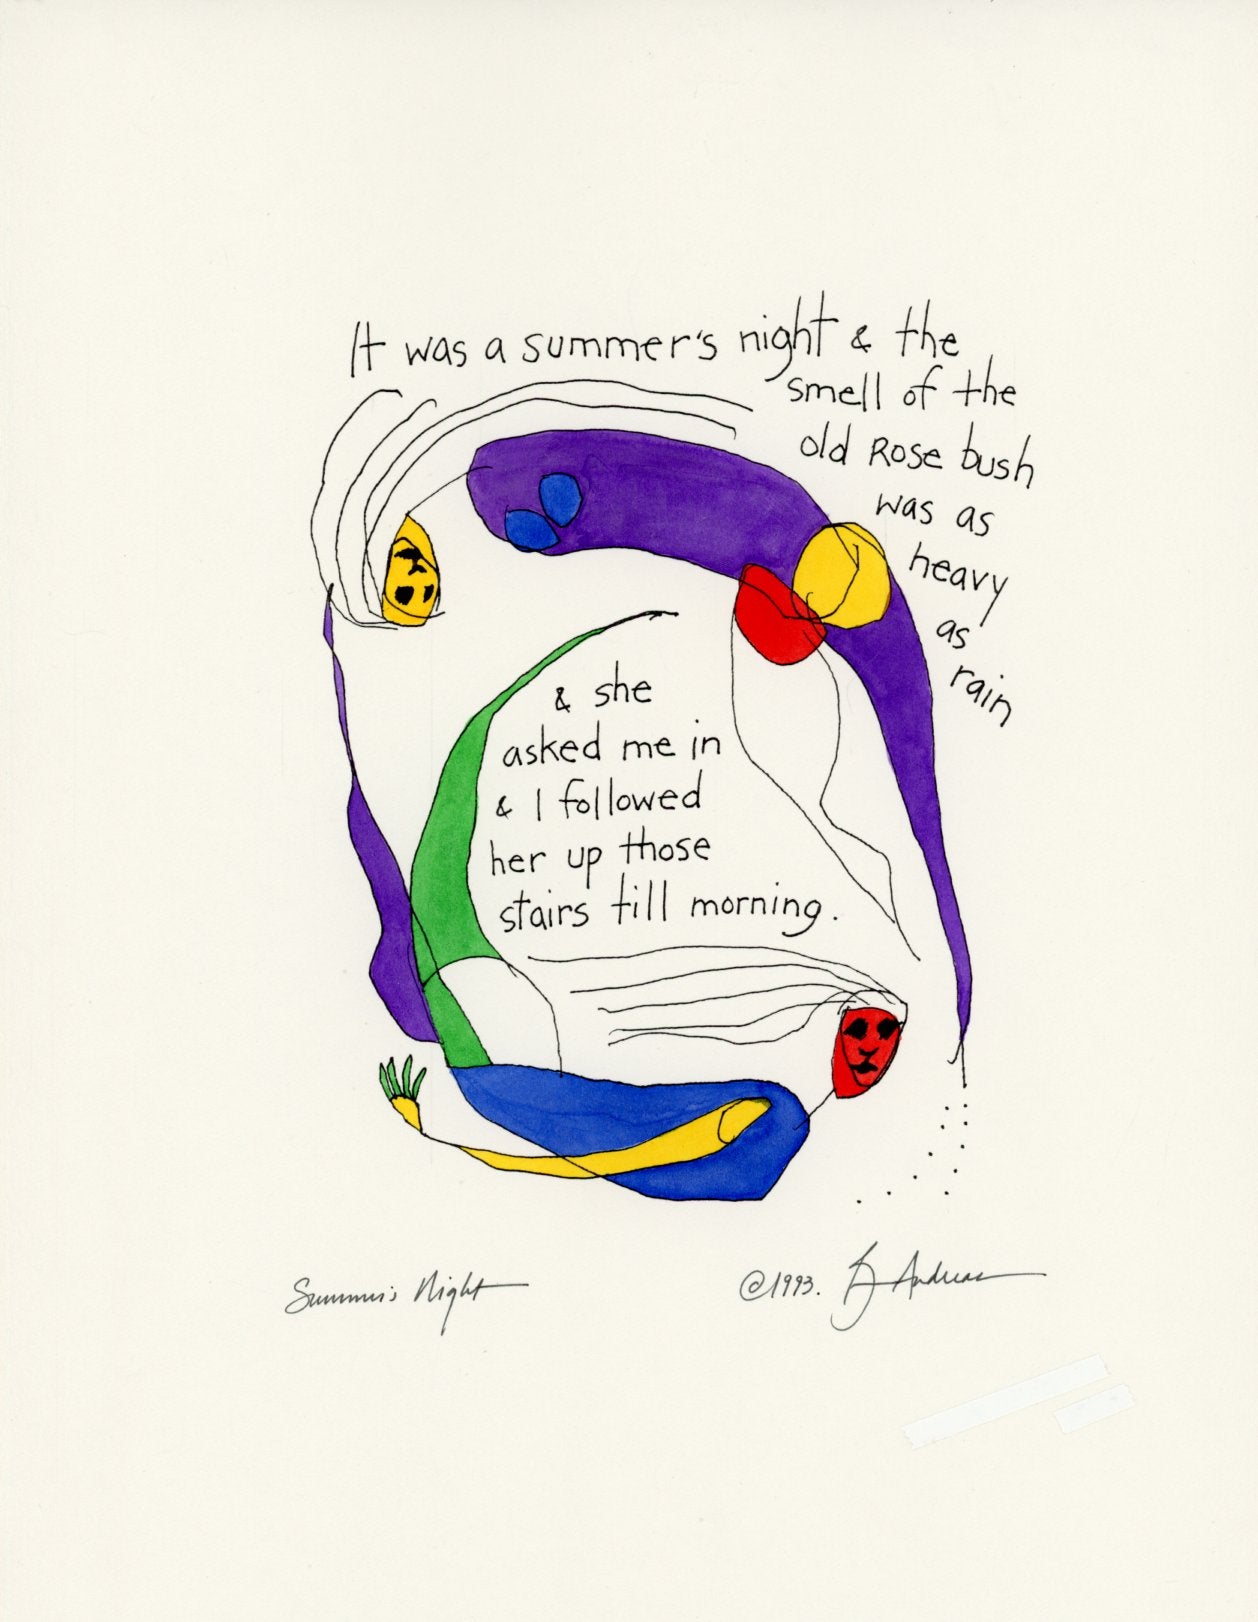 It was a summer's night & the
smell of the
old Rose bush
was as
heavy
as
rain
& she
asked me in
& I followed
her up those
stairs till morning.
Summer's Night
©1993. Andreas